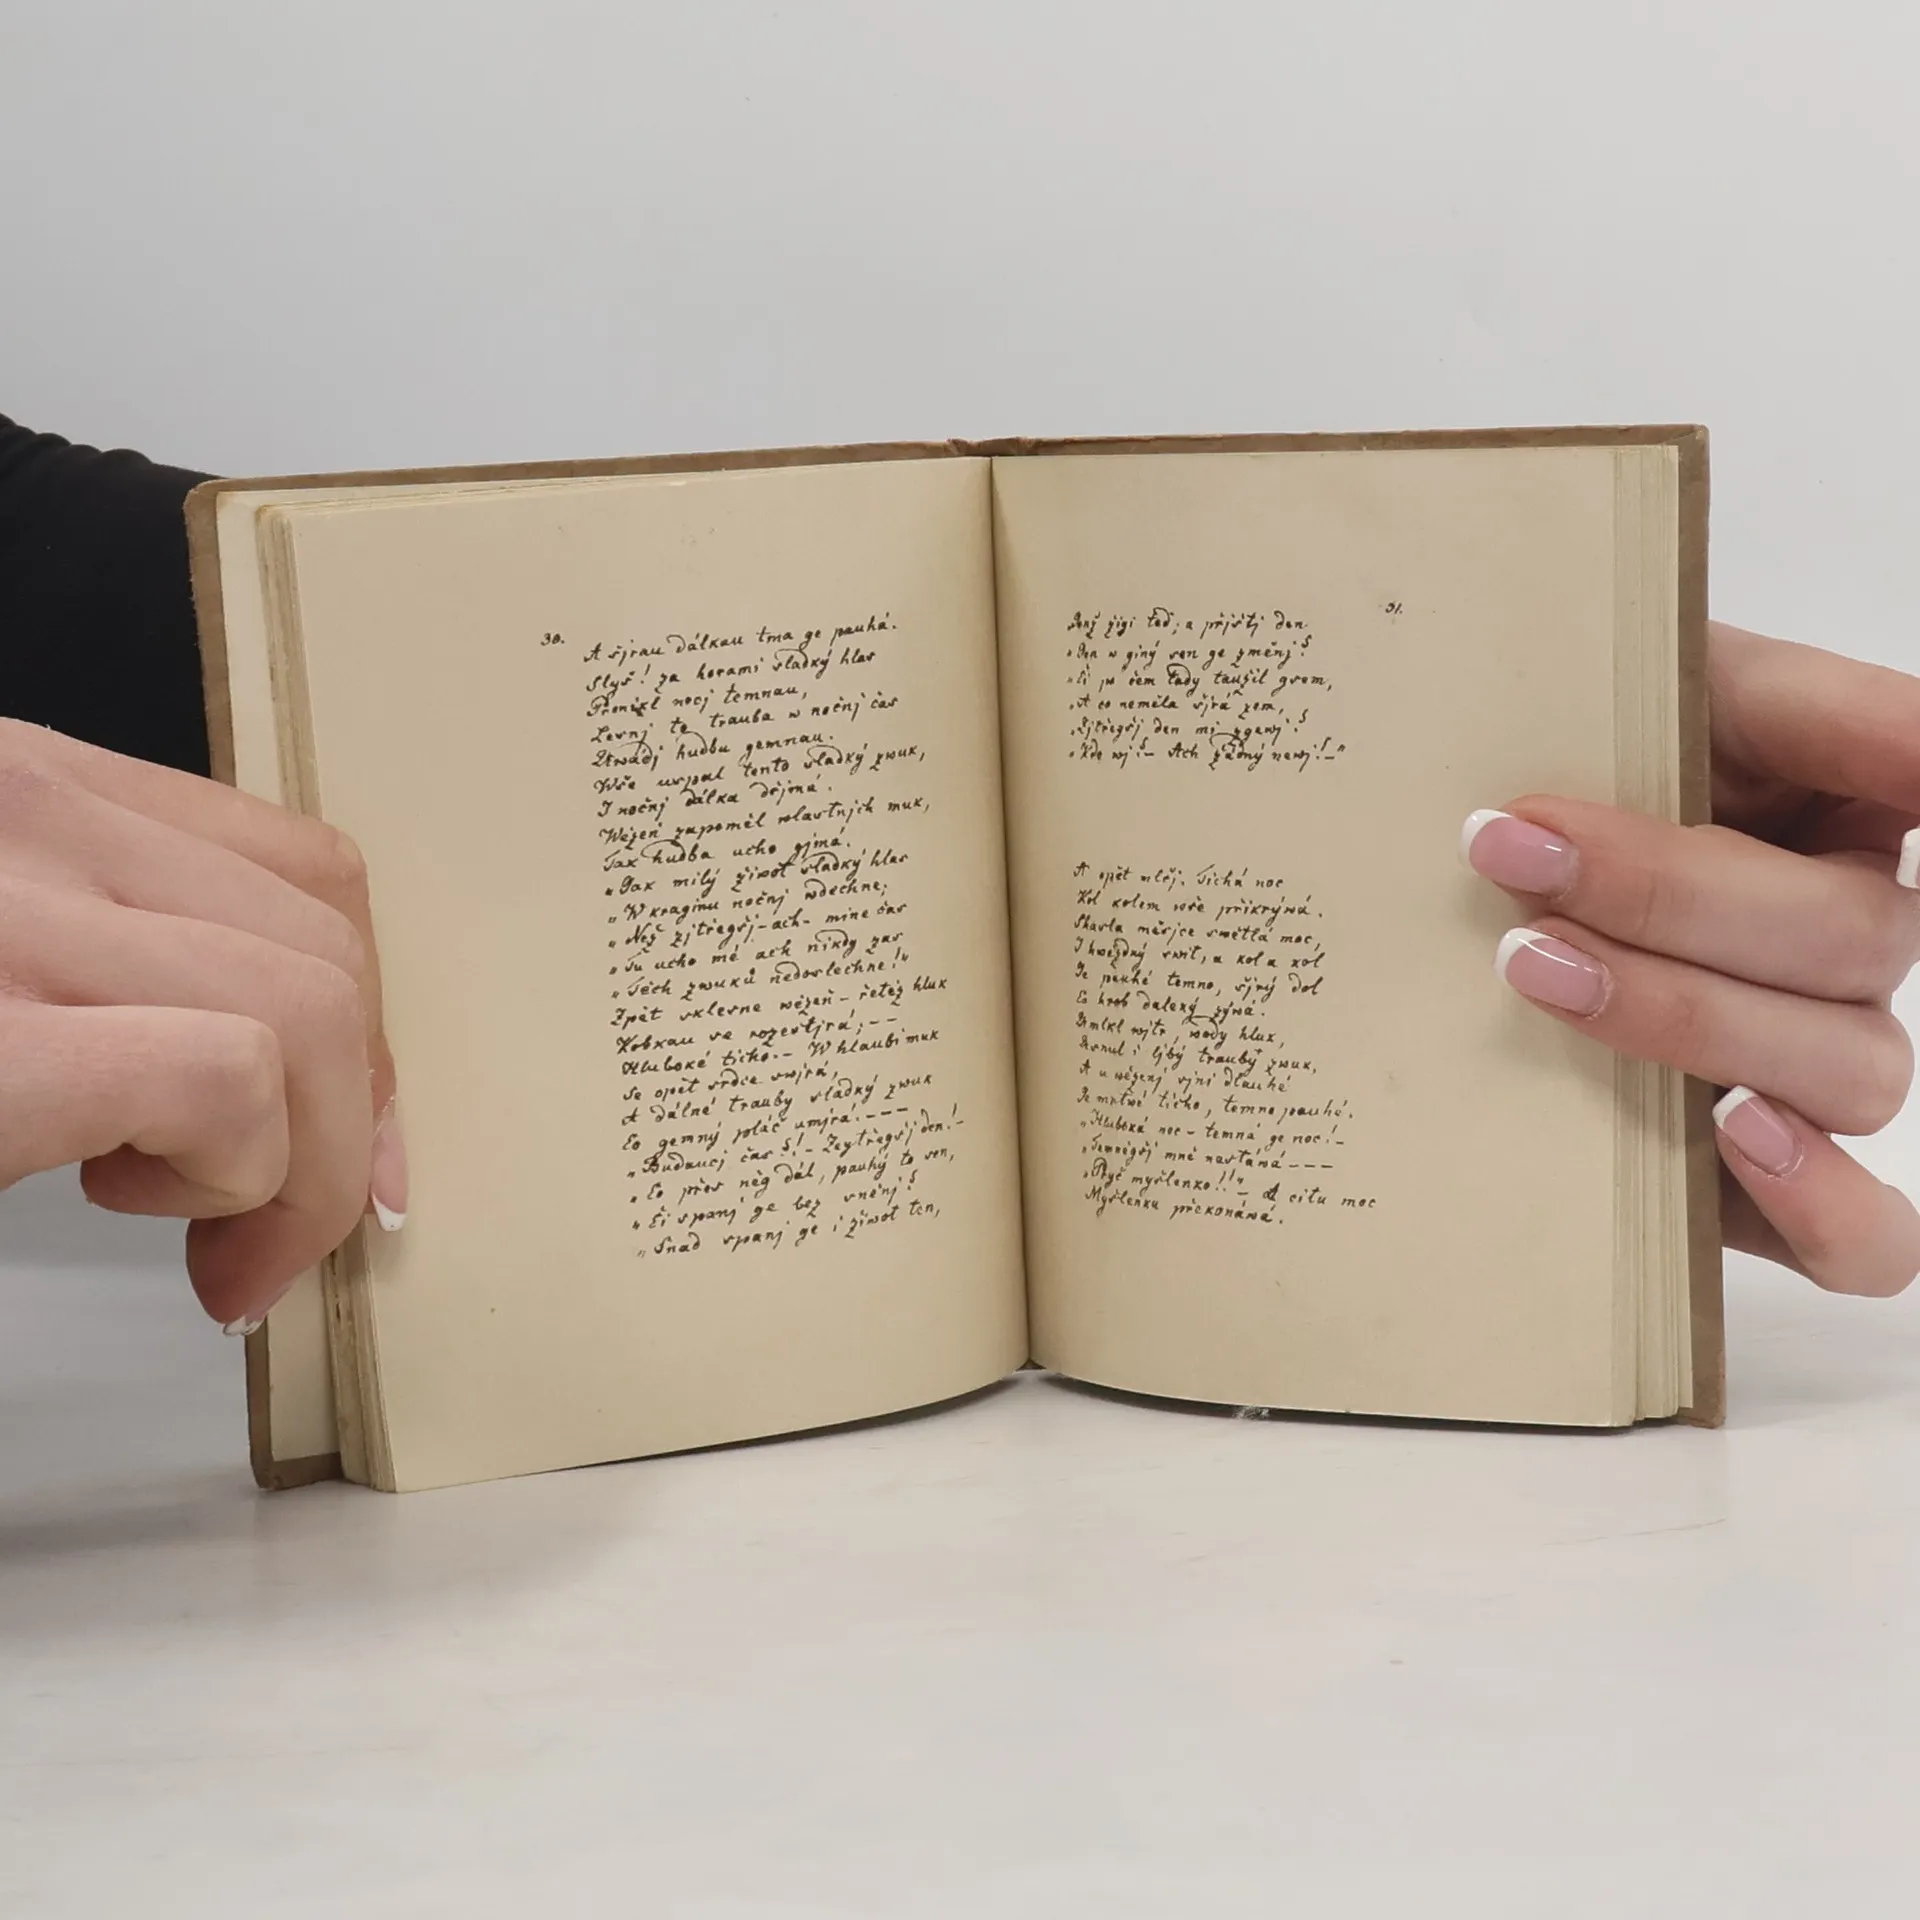 30.
A sjrau dálkau tma ge pauhá.
Slyš! za horami sladký hlas
Pronikl nocj temnau,
Lesnj tě trauba w nočnj čas
Zwádj hudbu gemnau.
Wše uspal tento sladký zwuk,
I nočnj dálka džjmá.
Wězeň zapoměl wlastnjch muk,
Tak hudba ucho gjmá.
„Gak milý žiwot sladký hlas
„W kraginu nočnj wdechne;
„Než zjtřegšj – ach – mine čas
„Tu ucho mé ach nikdy zas
„Těch zwuků nedoslechne!"
Zpět sklesne wězeň – řetěz hluk
Kobkau se rozestjrá; – –
Hluboké ticho. – W hlaubi muk
Se opět srdce swjrá,
A dálné trauby sladký zwuk
Co gemný pláč umjrá. – – –
„Budaucj čas?! – Zeytřegšj den! –
„Co přes něg dál, pauhý to sen,
„Či spanj ge bez sněnj?
„Snad spanj ge i žiwot ten,
31.
Genž žigi teď; a přjštj den
„Gen w giný sen ge změnj?
„Či po čem tady taužil gsem,
„A co neměla šjrá zem,
„Zjtřegšj den mi zgewj?
„Kdo wj? – Ach žádný newj! –"
A opět mlčj. Tichá noc
Kol kolem wše přikrýwá.
Zhasla měsjce swětlá moc,
I hwězdný swit, a kol a kol
Ge pauhé temno, šjrý dol
Co hrob daleký zýwá.
Umlkl wjtr, wody hluk,
Usnul i ljbý trauby zwuk,
A u wězenj sjni dlauhé
Ge mrtwé ticho, temno pauhé.
„Hluboká noc – temná ge noc! –
„Temněgšj mně nastáwá – – –
„Pryč myšlenko!!" – A citu moc
Myšlenku překonáwá.